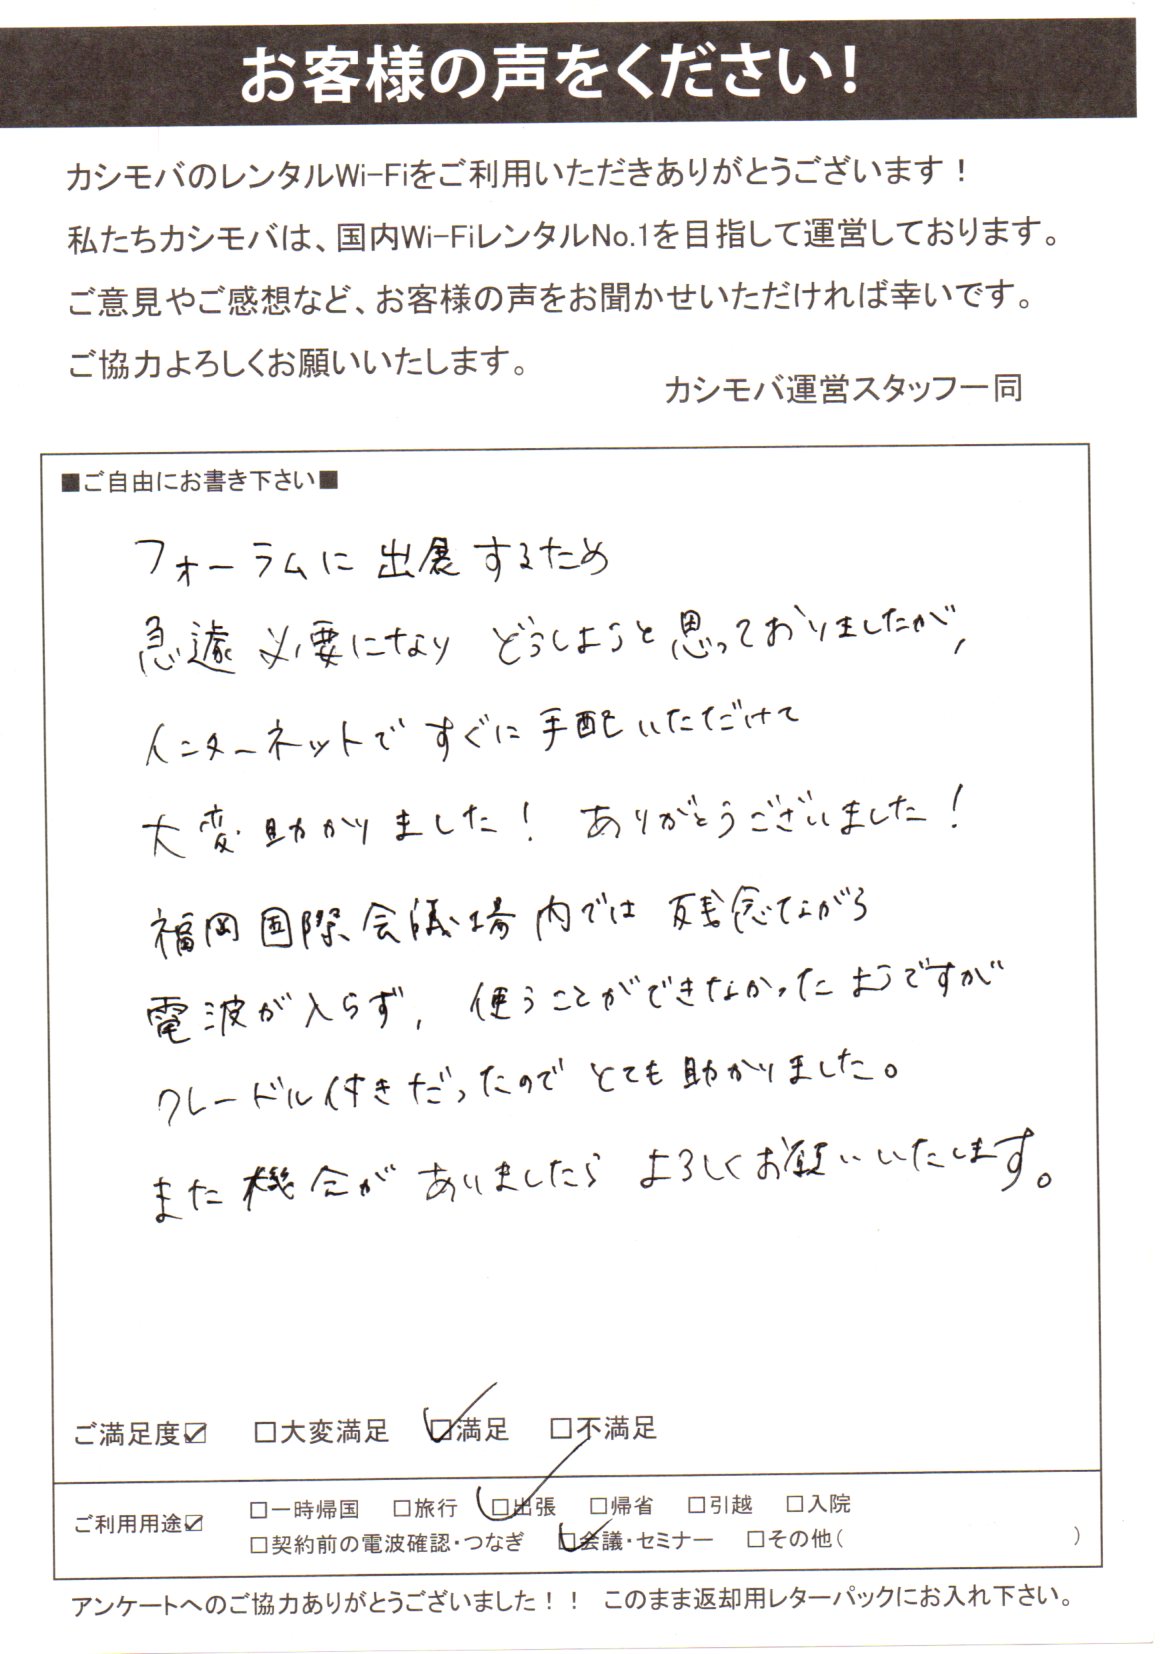 お客様の声をください！
カシモバのレンタルWi-Fiをご利用いただきありがとうございます！
私たちカシモバは、国内Wi-FiレンタルNo.1を目指して運営しております。
ご意見やご感想など、お客様の声をお聞かせいただければ幸いです。
ご協力よろしくお願いいたします。
カシモバ運営スタッフ一同
■ご自由にお書き下さい■
フォーラムに出展するため
急遽必要になり どうしようと思っておりましたが,
インターネットで すぐに手配いただけて
大変助かりました！ ありがとうございました！
福岡国際会議場内では 残念ながら
電波が入らず, 使うことができなかったようですが
クレードル付きだったので とても助かりました。
また機会が ありましたら よろしくお願いいたします。
ご満足度☑ □大変満足 ☑満足 □不満足
ご利用用途☑ □一時帰国 □旅行 ☑出張 □帰省 □引越 □入院
□契約前の電波確認・つなぎ ☑会議・セミナー □その他( )
アンケートへのご協力ありがとうございました！！ このまま返却用レターパックにお入れ下さい。